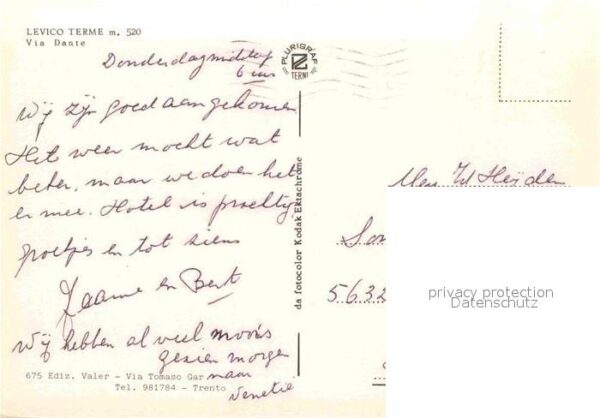 LEVICO TERME m. 520
Via Dante
Donderdagmiddag
6 uur
Wij zijn goed aangekomen
Het weer mocht wat
beter, maar we doen het
er mee. Hotel is prachtig
groetjes en tot ziens
en Bert
Wij hebben al veel moois
gezien morgen
naar
Venetie
675 Ediz. Valer - Via Tomaso Gar
Tel. 981784 - Trento
PLURIGRAF
TERNI
da fotocolor Kodak Ektachrome
Heyden
5632
privacy protection
Datenschutz